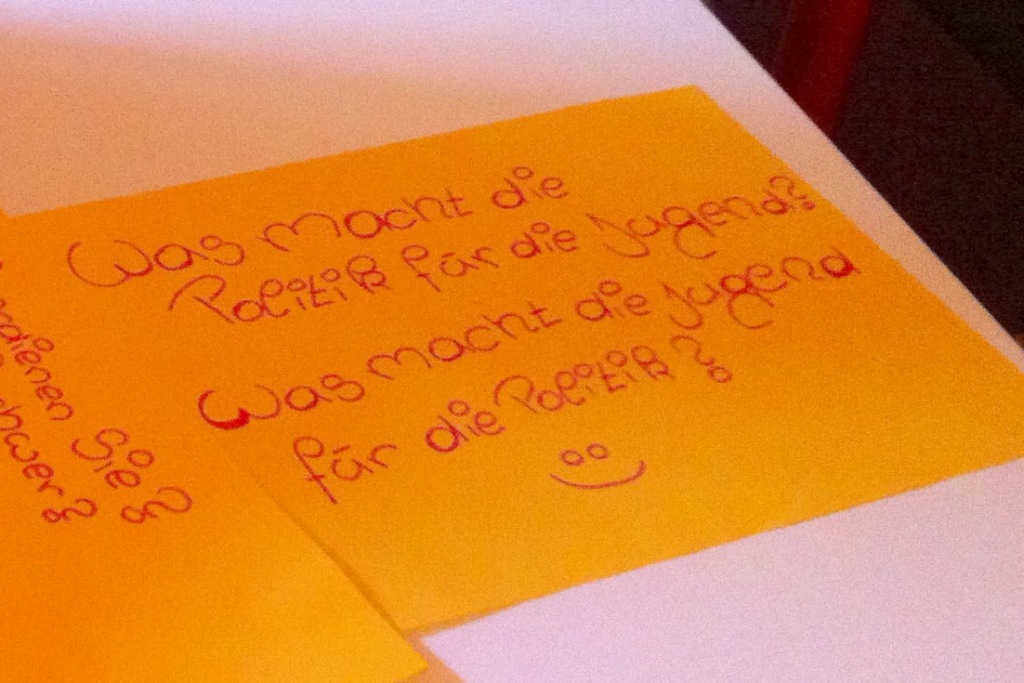 Was macht die
Politik für die Jugend?
Was macht die Jugend
für die Politik?
Sie?